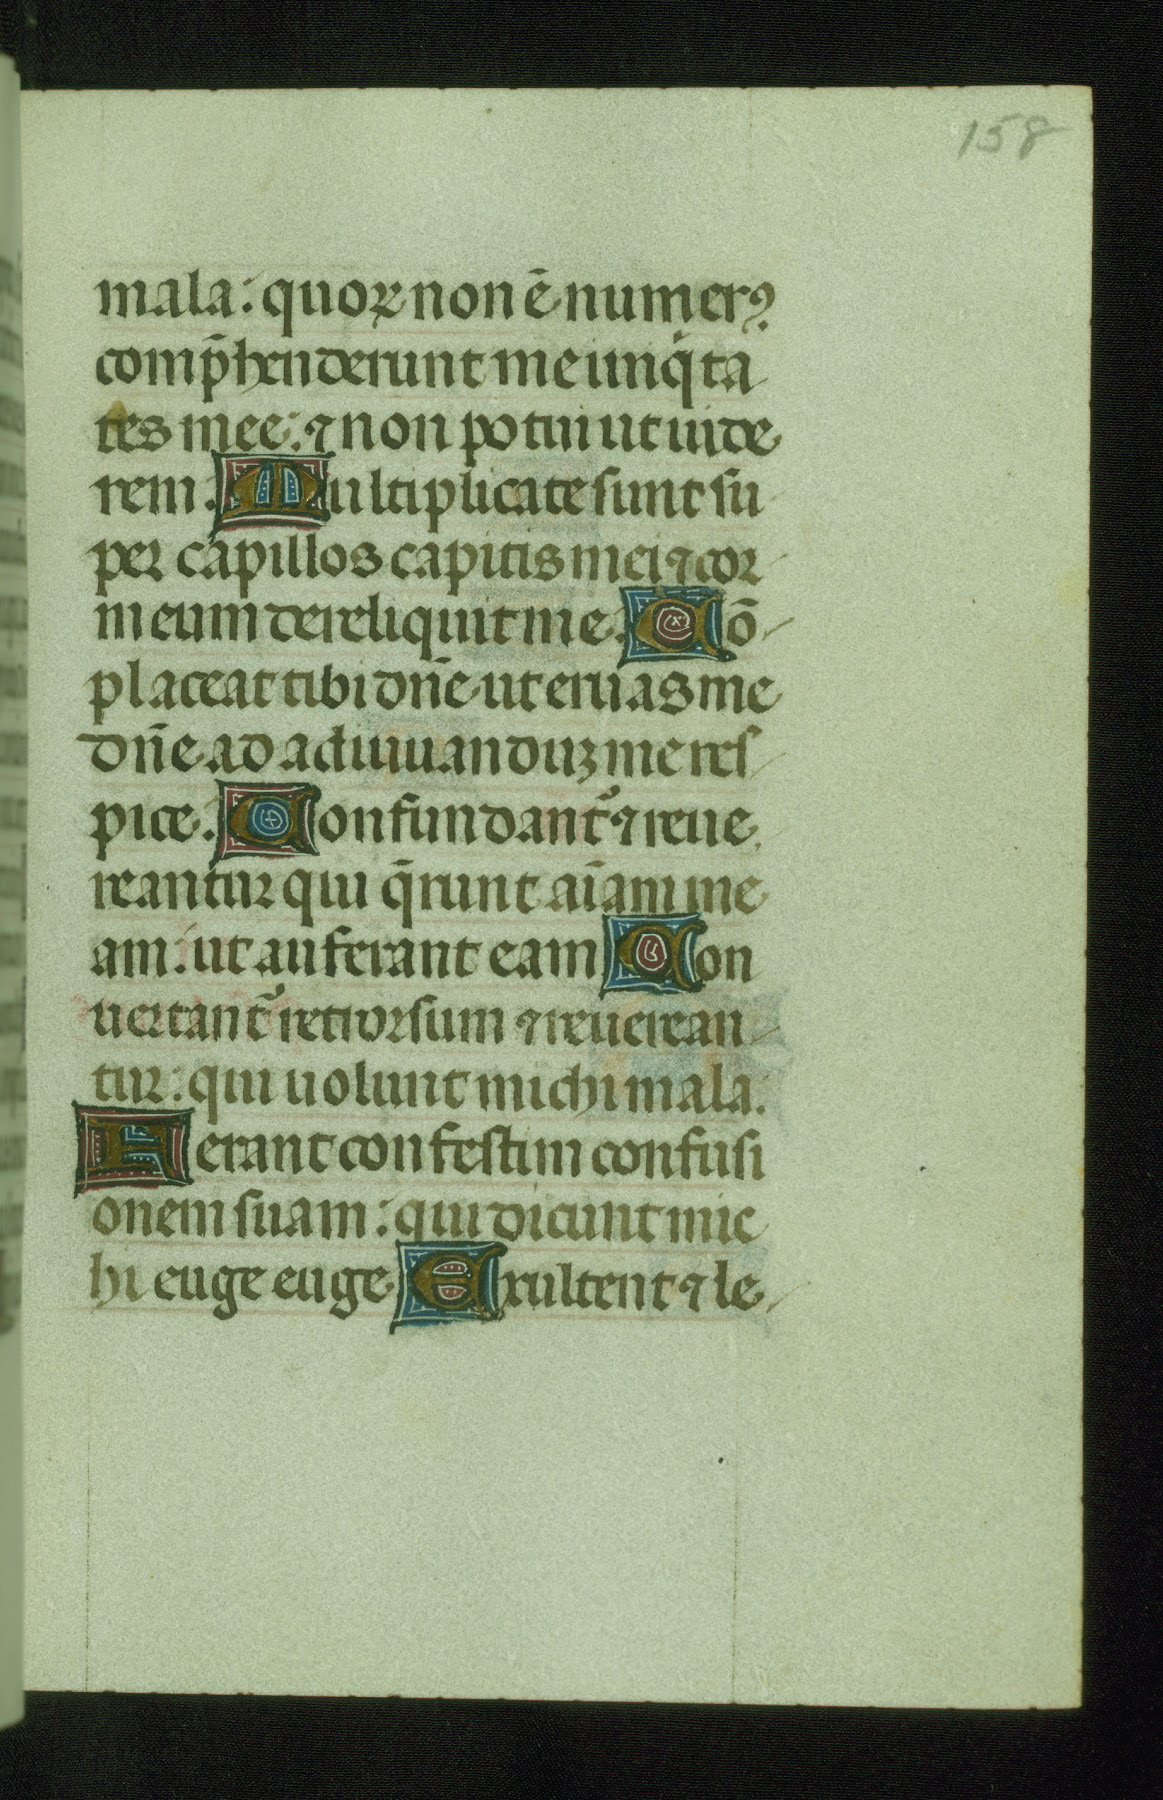 158
mala: quoꝝ non ē numerꝯ
comp̄henderunt me iniqͥta
tes mee: ⁊ non potui ut uide
rem. Multiplicate sunt su
per capillos capitis mei ⁊ cor
meum dereliquit me. Cō
placeat tibi dn̄e ut eruas me
dn̄e ad adiuuanduꝫ me res
pice. Confundant᷑ ⁊ reue
reantur qui q̄runt aīam me
am: ut auferant eam Con
uertant᷑ retrorsum ⁊ reuerean
tur: qui uolunt michi mala.
Ferant confestim confusi
onem suam: qui dicunt mic
hi euge euge Exultent ⁊ le